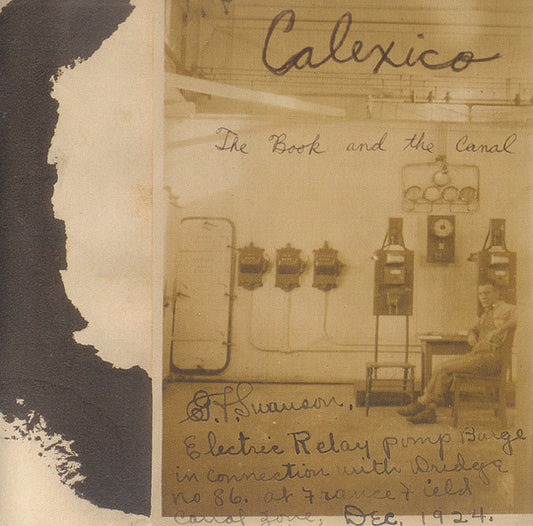 Calexico
The Book and the Canal
G.F. Swanson.
Electric Relay pomp Barge
in connection with Dridge
no 86. at France Field
Canal Zone, Dec 1924.